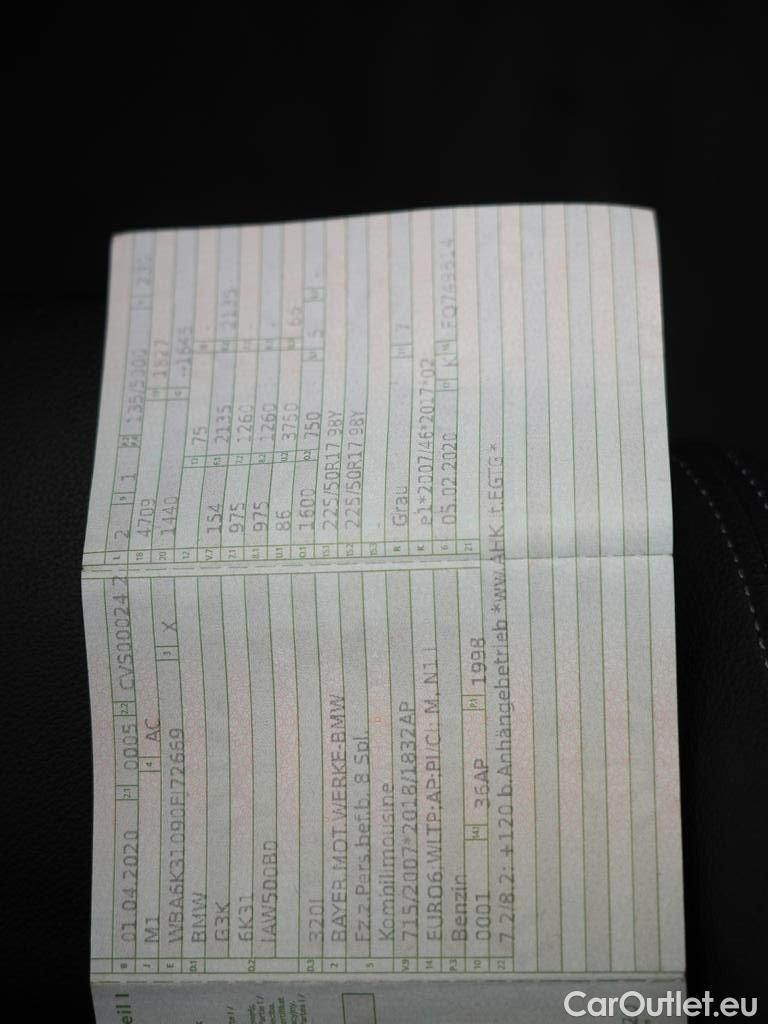 B 01.04.2020 2.1 0005 2.2 CVS00024 2
J M1 4 AC
E WBA6K31090FJ72669 3 X
D.1 BMW
G3K
D.2 6K31
IAW500B0
D.3 320I
2 BAYER.MOT.WERKE-BMW
5 Fz.z.Pers.bef.b. 8 Spl.
Kombilimousine
V.9 715/2007*2018/1832AP
14 EURO6;WLTP;AP;PI/CI: M, N1 I
P.3 Benzin
10 0001 14.1 36AP P.1 1998
22 7.2/8.2: +120 b.Anhängebetrieb *ww.AHK lt.EGTG*
L 2 9 1 P.2 135/5000 T 230
18 4709 19 1827
20 1440 G --1645
12 - 13 75
V.7 154 F.1 2135 F.2 2135
7.1 975 7.2 1260
8.1 975 8.2 1260
U.1 86 U.2 3750 U.3 66
O.1 1600 O.2 750 S.1 5
15.1 225/50R17 98Y
15.2 225/50R17 98Y
15.3 -
R Grau 11 7
K e1*2007/46*2017*02
6 05.02.2020 17 K 16
21
eil I
CarOutlet.eu